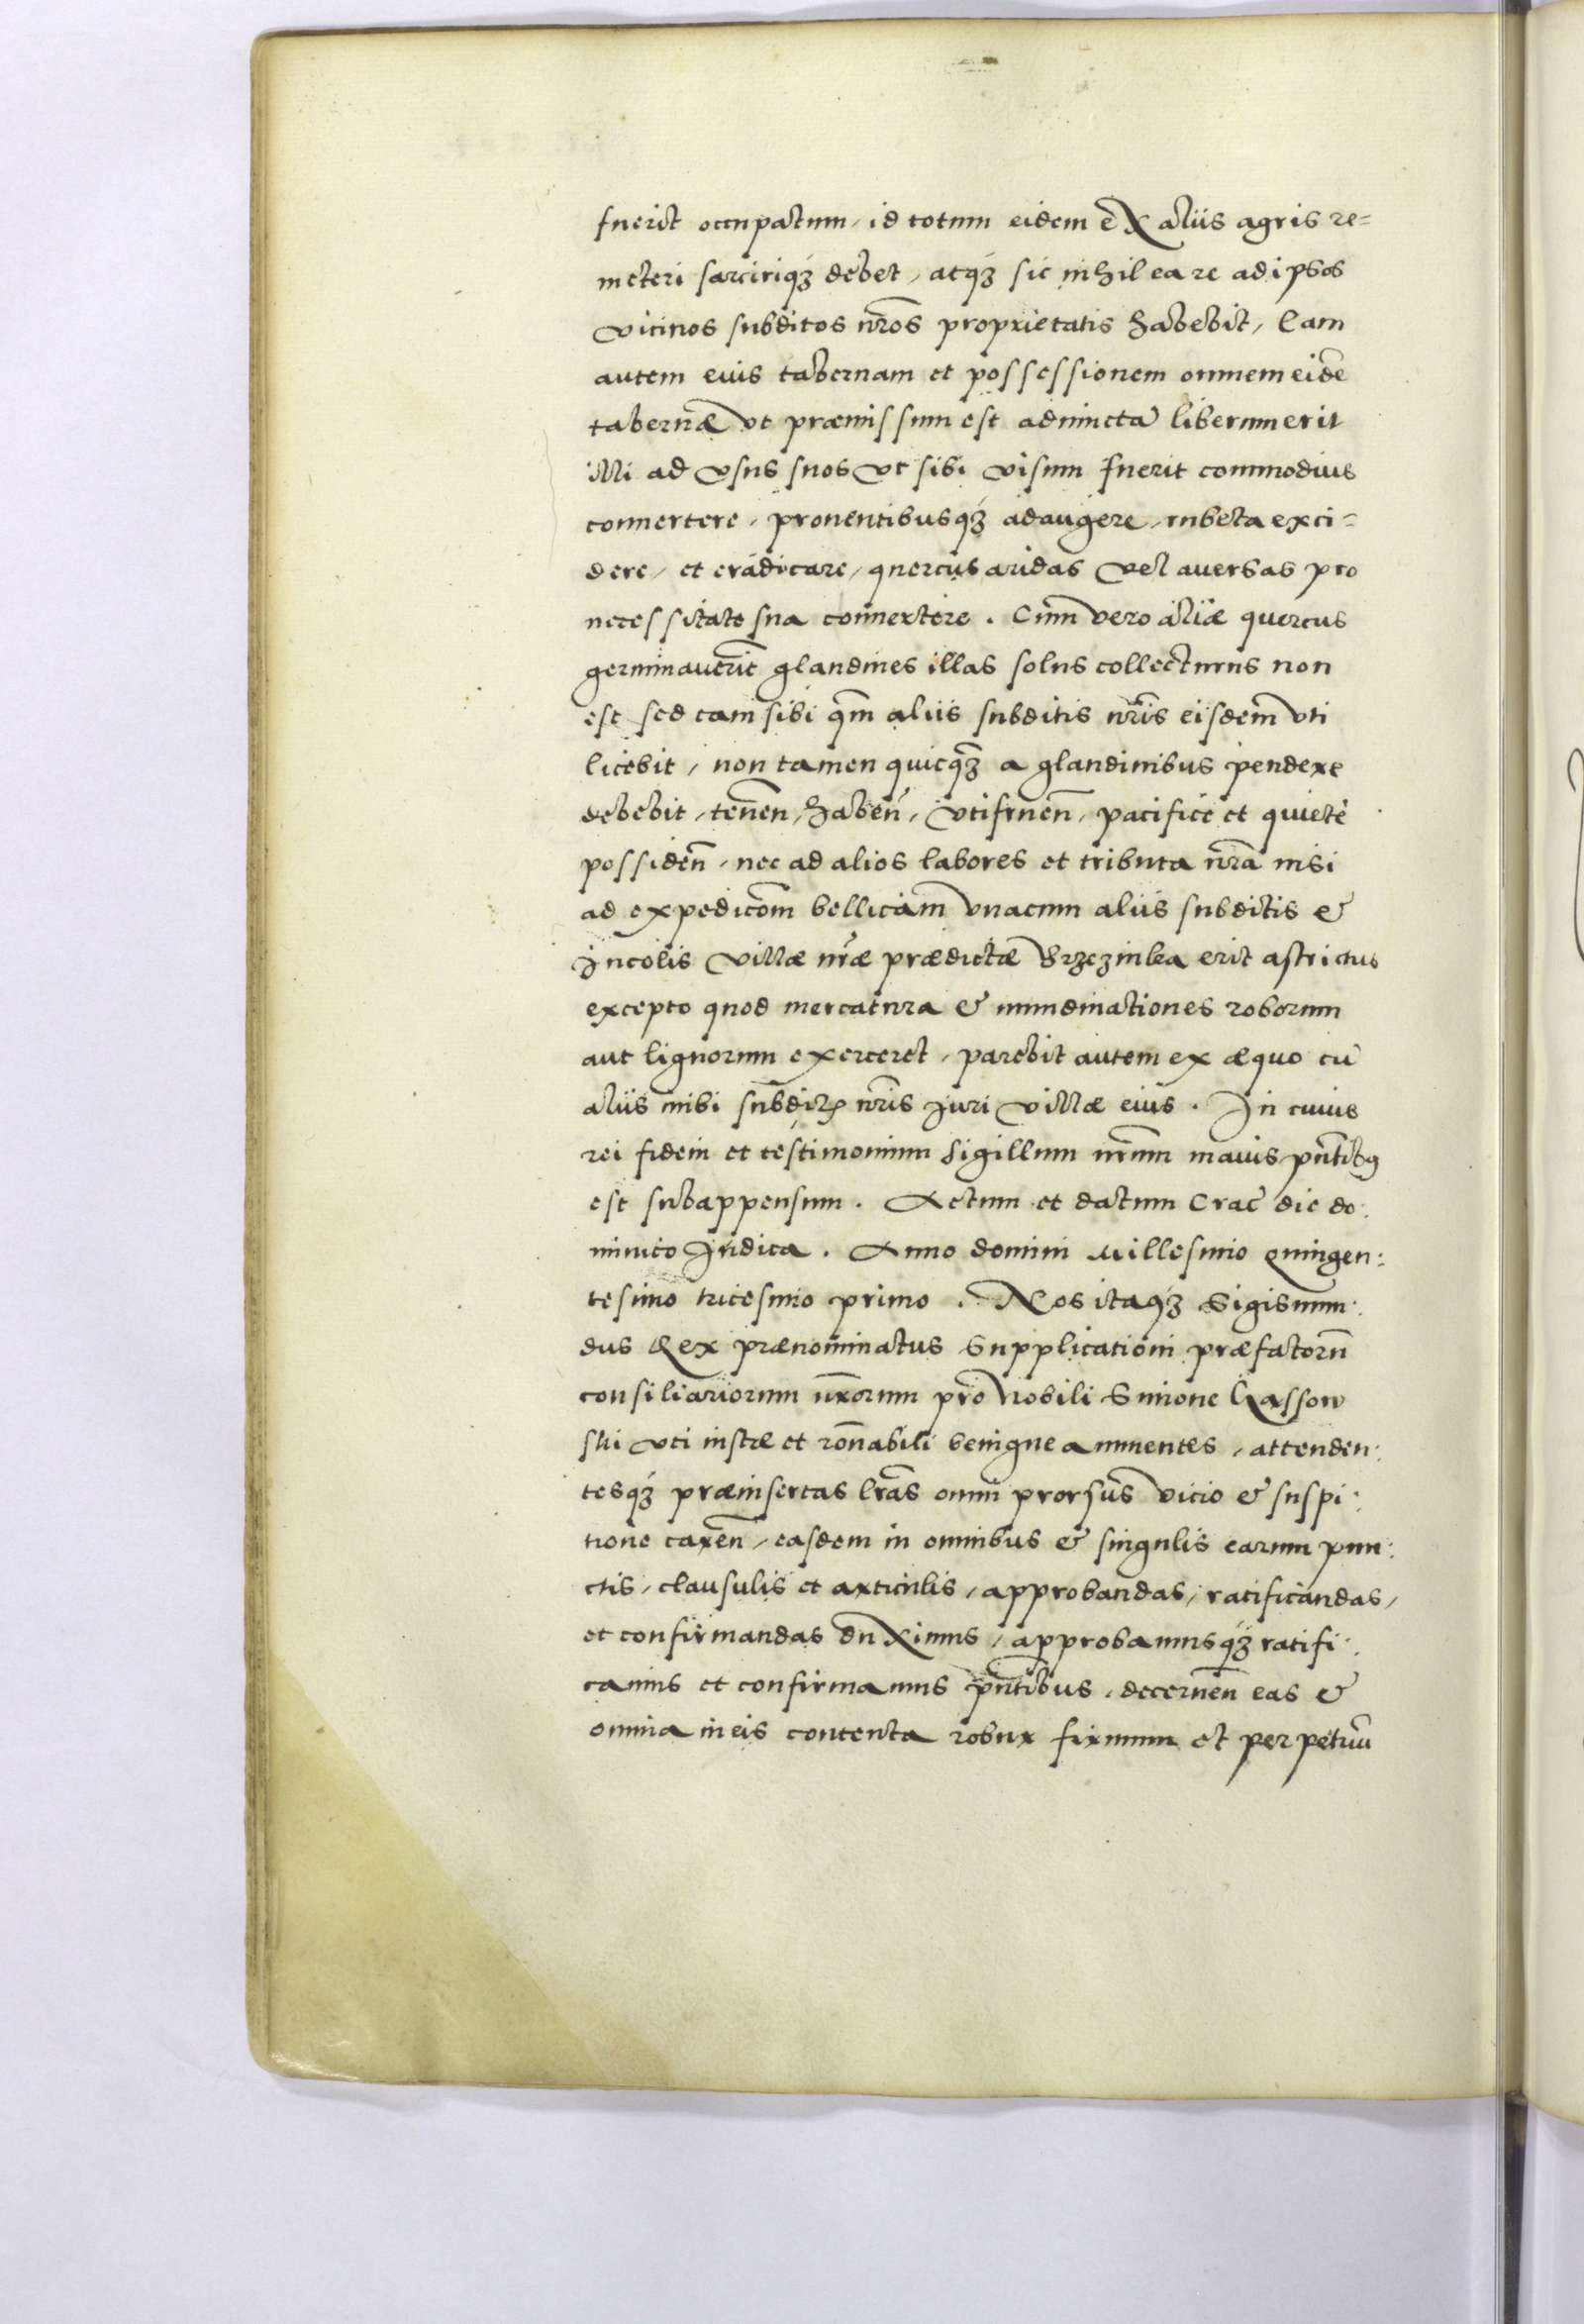 fuerit occupatum, id totum eidem ex aliis agris re=
meteri sarciriq₃ debet, atq₃ sic nihil ea re ad ipsos
vicinos subditos nr̃os proprietatis habebit, Eam
autem eius tabernam et possessionem omnem eidẽ
tabernæ ut præmissum est adiuncta liberum erit
illi ad usus suos ut sibi visum fuerit commodius
conuertere, prouentibusq₃ adaugere, rubeta exci=
dere, et eradicare, quercus aridas vel auersas pro
necessitate sua conuertere. Cum vero aliæ quercus
germinauerĩt glandines illas solus collecturus non
est sed tam sibi q̃m aliis subditis nr̃is eisdem uti
licebit, non tamen quicq₃ a glandinibus pendere
debebit, tenen̄, haben̄, utifruen̄, pacifice et quiete
possiden̄, nec ad alios labores et tributa nr̃a nisi
ad expedicõm bellicam unacum aliis subditis &
Incolis villæ nr̃æ prædictæ Brzezinka erit astrictus
excepto quod mercatura & nundinationes roborum
aut lignorum exerceret, parebit autem ex æquo cũ
aliis inibi subditꝭ nr̃is Iuri villæ eius. In cuius
rei fidem et testimonium Sigillum nr̃um maius pñtibꝯ
est subappensum. Actum et datum Crac̃ die do:
minico Iudica. Anno domini Millesimo quingen:
tesimo tricesimo primo. Nos itaq₃ Sigismun:
dus Rex prænominatus Supplicationi præfatorũ
consiliariorum nr̃orum pro Nobili Simone Kassow
ski uti iustæ et rõnabili benigne annuentes, attenden:
tesq₃ præinsertas lr̃as omni prorsus vicio & suspi:
tione caren̄, easdem in omnibus & singulis earum pun:
ctis, clausulis et articulis, approbandas, ratificandas,
et confirmandas duximus, approbamusq₃ ratifi:
camus et confirmamus pñtibus, decernen̄ eas &
omnia in eis contenta robur firmum et perpetuũ